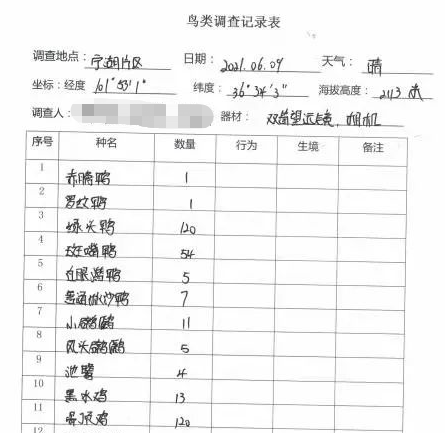 鸟类调查记录表
调查地点: 宁湖片区 日期: 2021.06.09 天气: 晴
坐标: 经度 101°53′1″ 纬度: 36°34′3″ 海拔高度: 2113米
调查人: 器材: 双筒望远镜、相机
序号 种名 数量 行为 生境 备注
1 赤膀鸭 1
2 罗纹鸭 1
3 绿头鸭 120
4 斑嘴鸭 54
5 白眼潜鸭 5
6 普通秋沙鸭 7
7 小鸊鷉 11
8 凤头鸊鷉 5
9 池鹭 4
10 黑水鸡 13
11 骨顶鸡 120